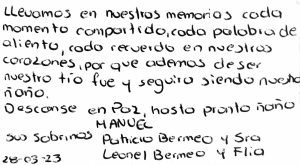 Llevamos en nuestros memorias cada
momento compartido, cada palabra de
aliento, cada recuerdo en nuestros
corazones, por que ademas de ser
nuestro tio fue y seguira siendo nuestro
ñaño.
Descanse en Paz, hasta pronto ñaño
MANUEL
sus Sobrinos Patricio Bermeo y Sra
Leonel Bermeo y Flia
28-03-23